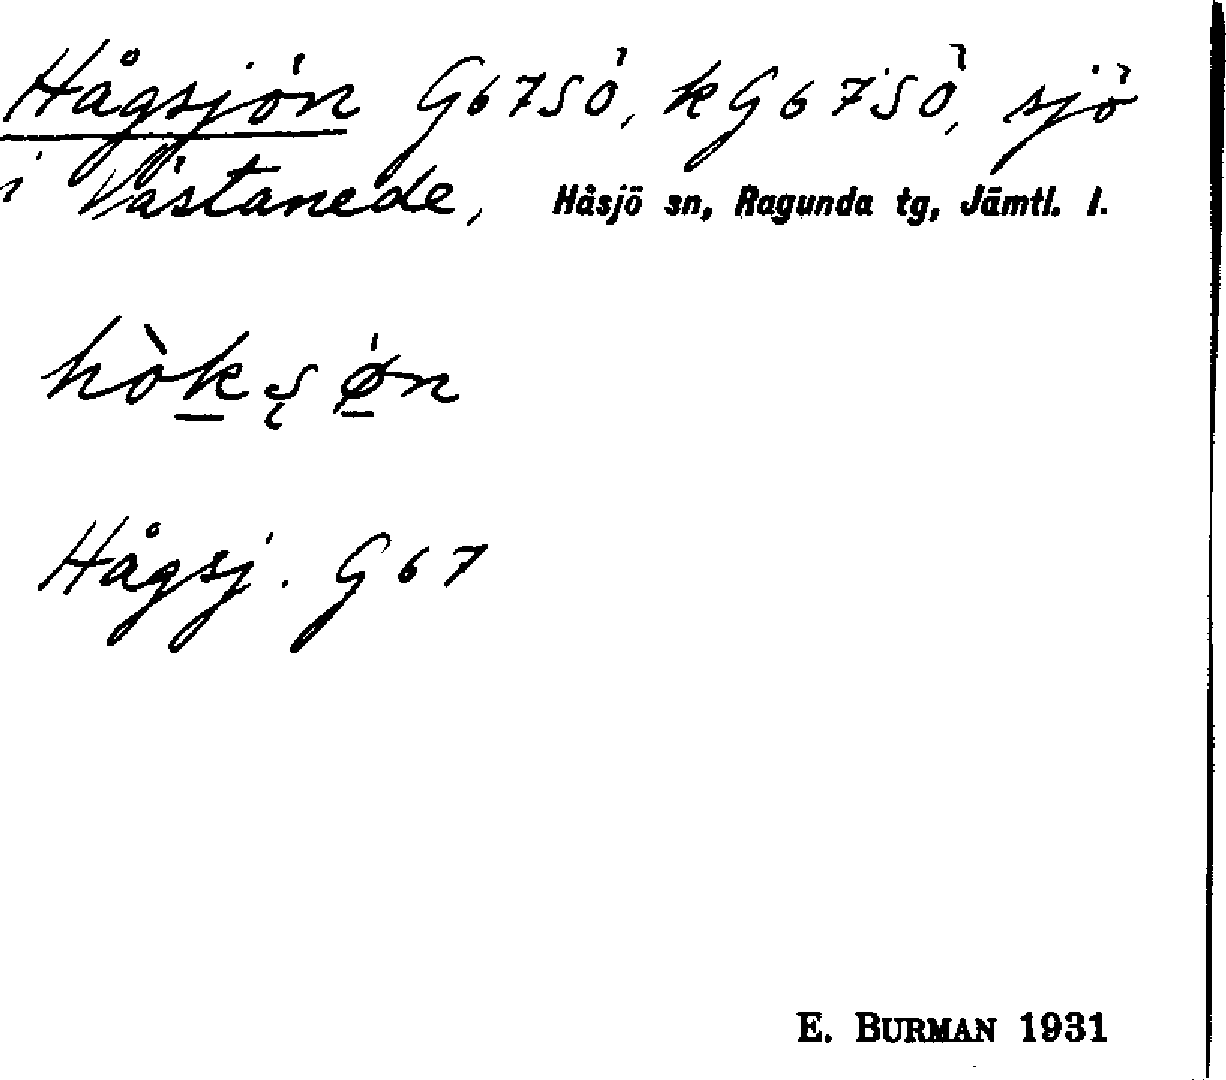 Hågsjön G67SÖ, kG67SÖ, sjö
i Västanede, Håsjö sn, Ragunda tg, Jämtl. l.
hòk̲s̨ ø̲n
Hågsj. G67
E. BURMAN 1931